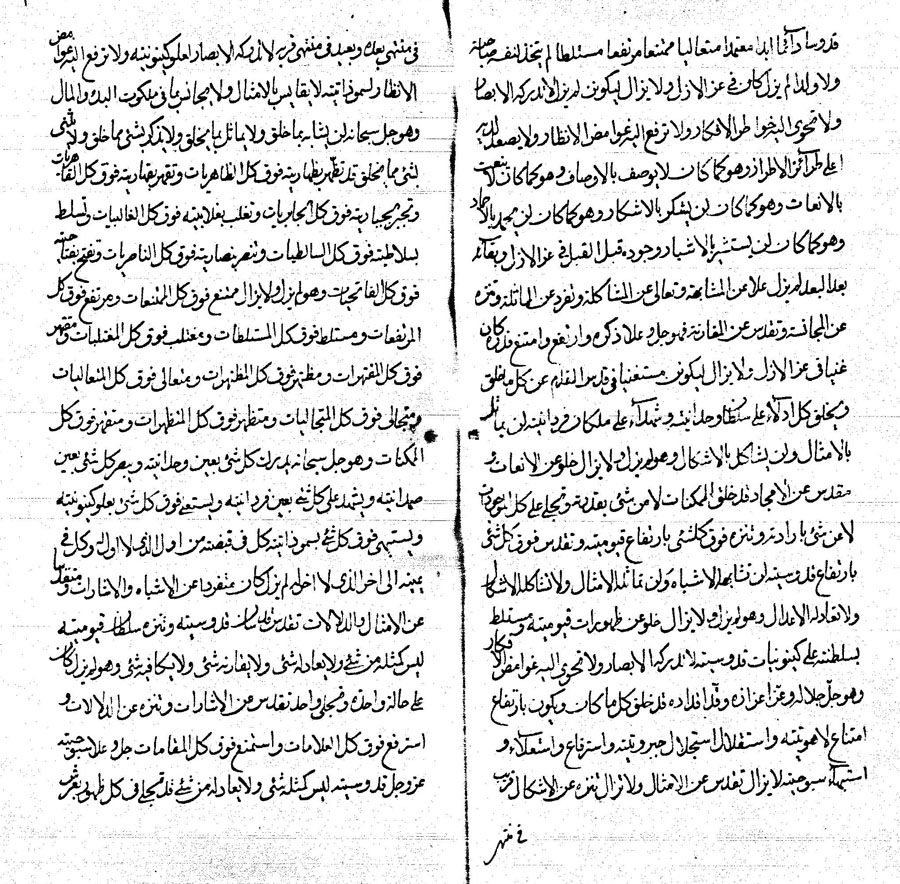 قدوسا دائما ابدا معتمدا متعاليا ممتنعا مرتفعا مستلطا لم يتخذ لنفسه صاحبة
ولا ولدا لم يزل كان في عز الازل ولا يزال ليكونن لم يزل لا تدركه الابصار
ولا تحوى اليه خواطر الافكار ولا ترفع اليه غوامض الانظار ولا يصعد اليه
اعلى طرائز الاطراز وهو كما كان لا يوصف بالاوصاف وهو كما كان لا ينعت
بالانعات وهو كما كان لن يشكر بالاشكار وهو كما كان لن يمجد بالامجاد
وهو كما كان لن يستشير بالاشيار وجوده قبل القبل في عز الازل وبقائه
بعد البعد لم يزل علا عن المشابهة وتعالى عن الشاكلة وتفرد عن الماثلة وتنزه
عن المجانسة وتقدس عن المقارنة فهو جل وعلا ذكره وارتفع وامتنع قدره كان
غنيا في عز الازل ولا يزال ليكونن مستغنيا في قدس القدم عن كل ما يخلق
ويخلق كل ادلاء على سلطان وحدانيته وشهداء على ملكان فردانيته لن يماثل
بالامثال ولن يشاكل بالاشكال وهو لم يزل ولا يزال خلو عن الانعات و
مقدس عن الامجاد قد خلق الممكنات لا من شئ بقدرته وتجلى على كل الموجودات
لا من شئ بارادته وتنزه فوق كلشئ بارتفاع قيوميته وتقدس فوق كل شئ
بارتفاع قدوسيته لن تشابهه الاشباه ولن تماثله الامثال ولا تشاكله الاشكال
ولا تعادله الاعدال وهو لم يزل ولا يزال خلو عن ظهورات قيوميته ومستلط
بسلطنته على كينونيات قدوسيته لا تدركه الابصار ولا تحوى اليه غوامض الافكار
وهو جل جلاله وعز اعزازه وقد اقداده قد خلق كل ما كان ويكون بارتفاع
امتناع لاهوتيته واستقلال استجلال جبروتيته واسترفاع واستعلاء و
استبهاء سبوحيته لا يزال تقدس عن الامثال ولا تزال تنزه عن الاشكال قريب
في منتهى
في منتهى بعده وبعيد في منتهى قربه لا تدركه الابصار لعلو كينونيته ولا ترفع اليه غوامض
الانظار لسمو ذاتيته لا يقايس بالامثال ولا يجانس بما في ملكوت البدء والمال
وهو جل سبحانه لن يشابه بما خلق ولا يماثل بما يخلق ولا يذكر بشئ مما خلق ولا يثنى
بشئ مما يخلق قد تظهر بظهاريته فوق كل الظاهريات وتقهر بقهاريته فوق كل القاهريات
وتجبر بجباريته فوق كل الجابريات وتغلب بغلابيته فوق كل الغالبيات وتسلط
بسلاطيته فوق كل السالطيات وتنصر بنصاريته فوق كل الناصريات وتفتح بفتاحيته
فوق كل الفاتحيات وهو لم يزل ولا يزال ممتنع فوق كل الممتنعات ومرتفع فوق كل
المرتفعات ومستلط فوق كل المستلطات ومغتلب فوق كل المغتلبات ومقتهر
فوق كل المقتهرات ومظتهر فوق كل المظتهرات ومتعالى فوق كل المتعاليات
ومتجالى فوق كل المتجاليات ومتظهر فوق كل المتظهرات ومتقهر فوق كل
الممكنات وهو جل سبحانه يدرك كل شئ بعين وحدانيته ويبصر كل شئ بعين
صمدانيته ويشهد على كل شئ بعين فردانيته ويستعلى فوق كل شئ بعلو كينونيته
ويستبهى فوق كل شئ بسمو ذاتيته كل في قبضته من اول الذي لا اول له وكل في
يمينه الى اخر الذي لا اخر له لم يزل كان متفردا عن الاشباه والاشارات ومتقدسا
عن الامثال والدلالات تقدس قدوسيته وتنزه سلطان قيوميته
ليس كمثله من شئ ولا يعادله شئ ولا يقارنه شئ ولا يكافيه شئ وهو لم يزل كان
على حالة واحدة وتجلى واحد تقدس عن الاشارات وتنزه عن الدلالات و
استرفع فوق كل العلامات واستمنع فوق كل المقامات جل وعلا سبوحيته
عز وجل قدوسيته ليس كمثله شئ ولا يعادله من شئ قد تجلى في كل ظهور بعرش